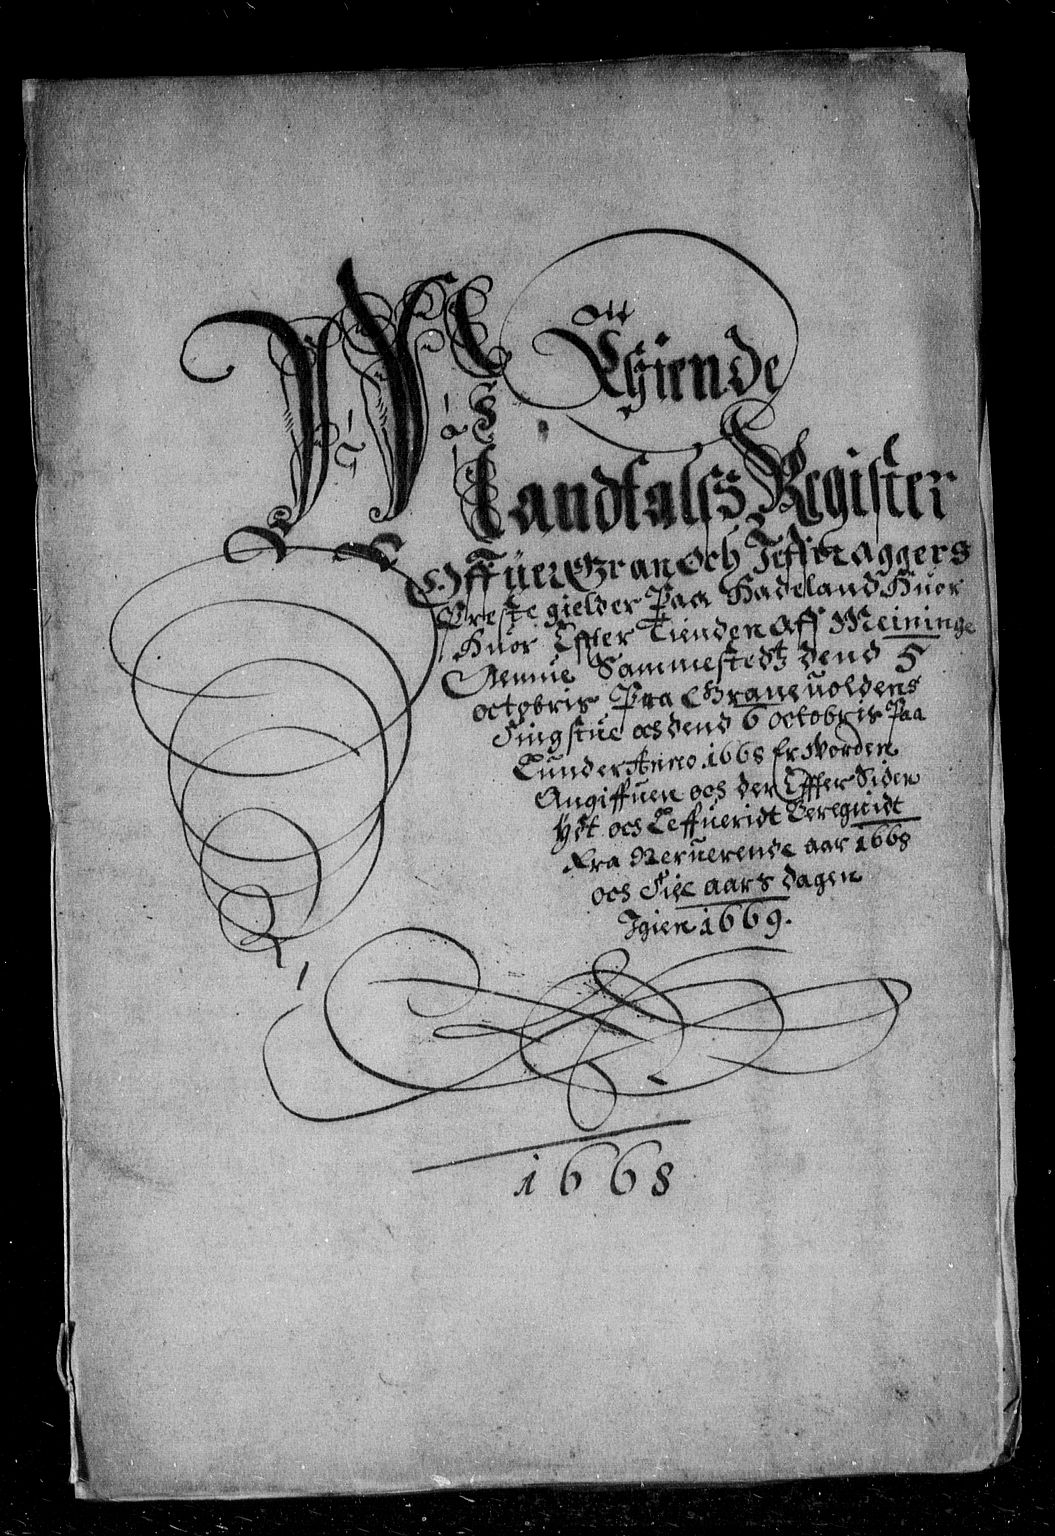 Ett
Thiende
Mandtalss Register
Offuer Gran Och Jeffnaggers
Prestegielder Paa Hadeland Huor
Huor Effter Tienden Aff Meininge
Nemue Sammestedtz dend 5
octobris Paa Graneuoldens
Tingstue och dend 6 octobris Paa
Lunder Anno 1668 Er Worden
Angiffuen och der Effter Siden
Ydt och Leffueridt Beregnidt
Fra Neruerende aar 1668
och Til aars dagen
Igien 1669.
1668